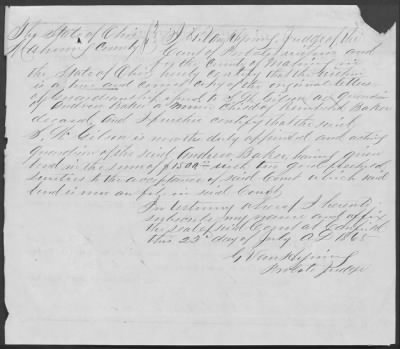 The State of Ohio } I G. Van Hyning Judge of the
Mahoning County } Court of Probate within and
for the County of Mahoning in
the State of Ohio hereby certify that the within
is a true and correct copy of the original letters
of issued to S. W. Gilson as Guardian
of Andrew Baker a minor child of Baker
deceased And I further certify that the said
S. W. Gilson is now the duly appointed and acting
Guardian of the said Andrew Baker having given
bond in the sum of $1500 with two good &
sureties to the acceptance of said Court which said
bond is now on file in said Court
In testimony whereof I hereunto
subscribe my name and affix
the seal of said Court at Canfield
this 25th day of July A.D. 1865
G Van Hyning
Probate Judge